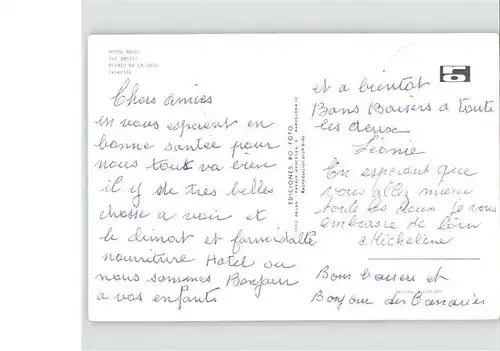 HOTEL
PUERTO DE LA CRUZ
Tenerife
Chers amies
en vous espérient en
bonne santée pour
nous tous va bien
il y de tres belles
chosse a voir et
le climat et formidable
nourriture Hotel ou
nous sommes Bonjour
a vos enfants
EDICIONES RO-FOTO
BARCELONA
Reproduction prohibida
et a bientot
Bons Baisers a toute
les deux
Léonie
En espérant que
vous allez mieux
toute les deux je vous
embrasse de loin
Micheline
Bons baisers et
Bonjour des Canaries